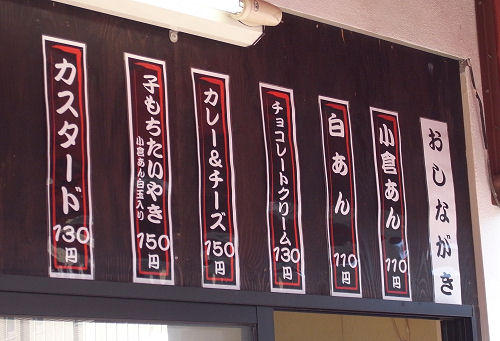 おしながき
小倉あん
110円
白あん
110円
チョコレートクリーム
130円
カレー&チーズ
150円
子もちたいやき
小倉あん白玉入り
150円
カスタード
130円